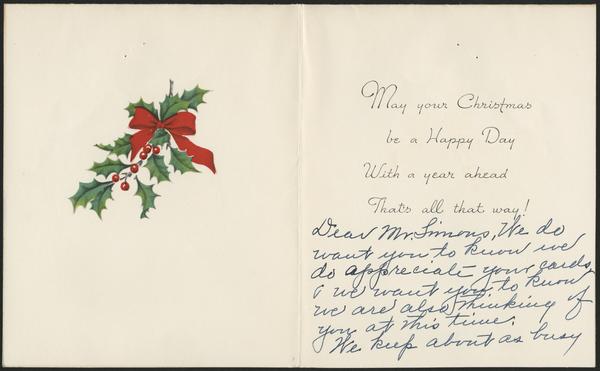 May your Christmas
be a Happy Day
With a year ahead
That's all that way!
Dear Mr. Simons, We do
want you to know we
do appreciate your cards,
& we want you to know
we are also thinking of
you at this time.
We keep about as busy